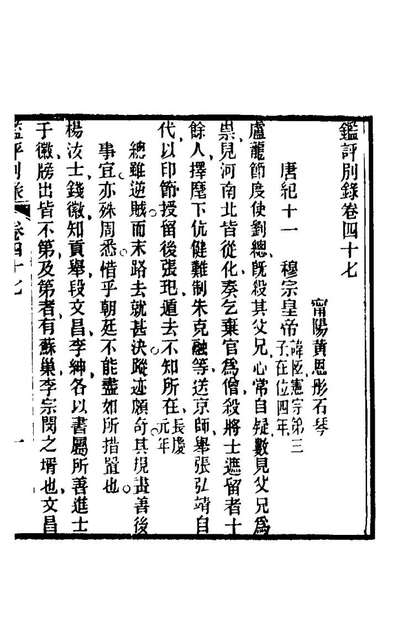 鑑評別錄卷四十七
甯陽黃恩彤石琴
唐紀十一　穆宗皇帝諱恆憲宗第三子在位四年
盧龍節度使劉總旣殺其父兄心常自疑數見父兄爲
祟見河南北皆從化奏乞棄官爲僧殺將士遮留者十
餘人擇麾下伉健難制朱克融等送京師舉張弘靖自
代以印節授留後張玘遁去不知所在長慶元年
總雖逆賊而末路去就甚決蹤迹頗奇其規畫善後
事宜亦殊周悉惜乎朝廷不能盡如所措置也
楊汝士錢徽知貢舉段文昌李紳各以書屬所善進士
于徽牓出皆不第及第者有蘇巢李宗閔之壻也文昌
鑑評別錄　卷四十七　一